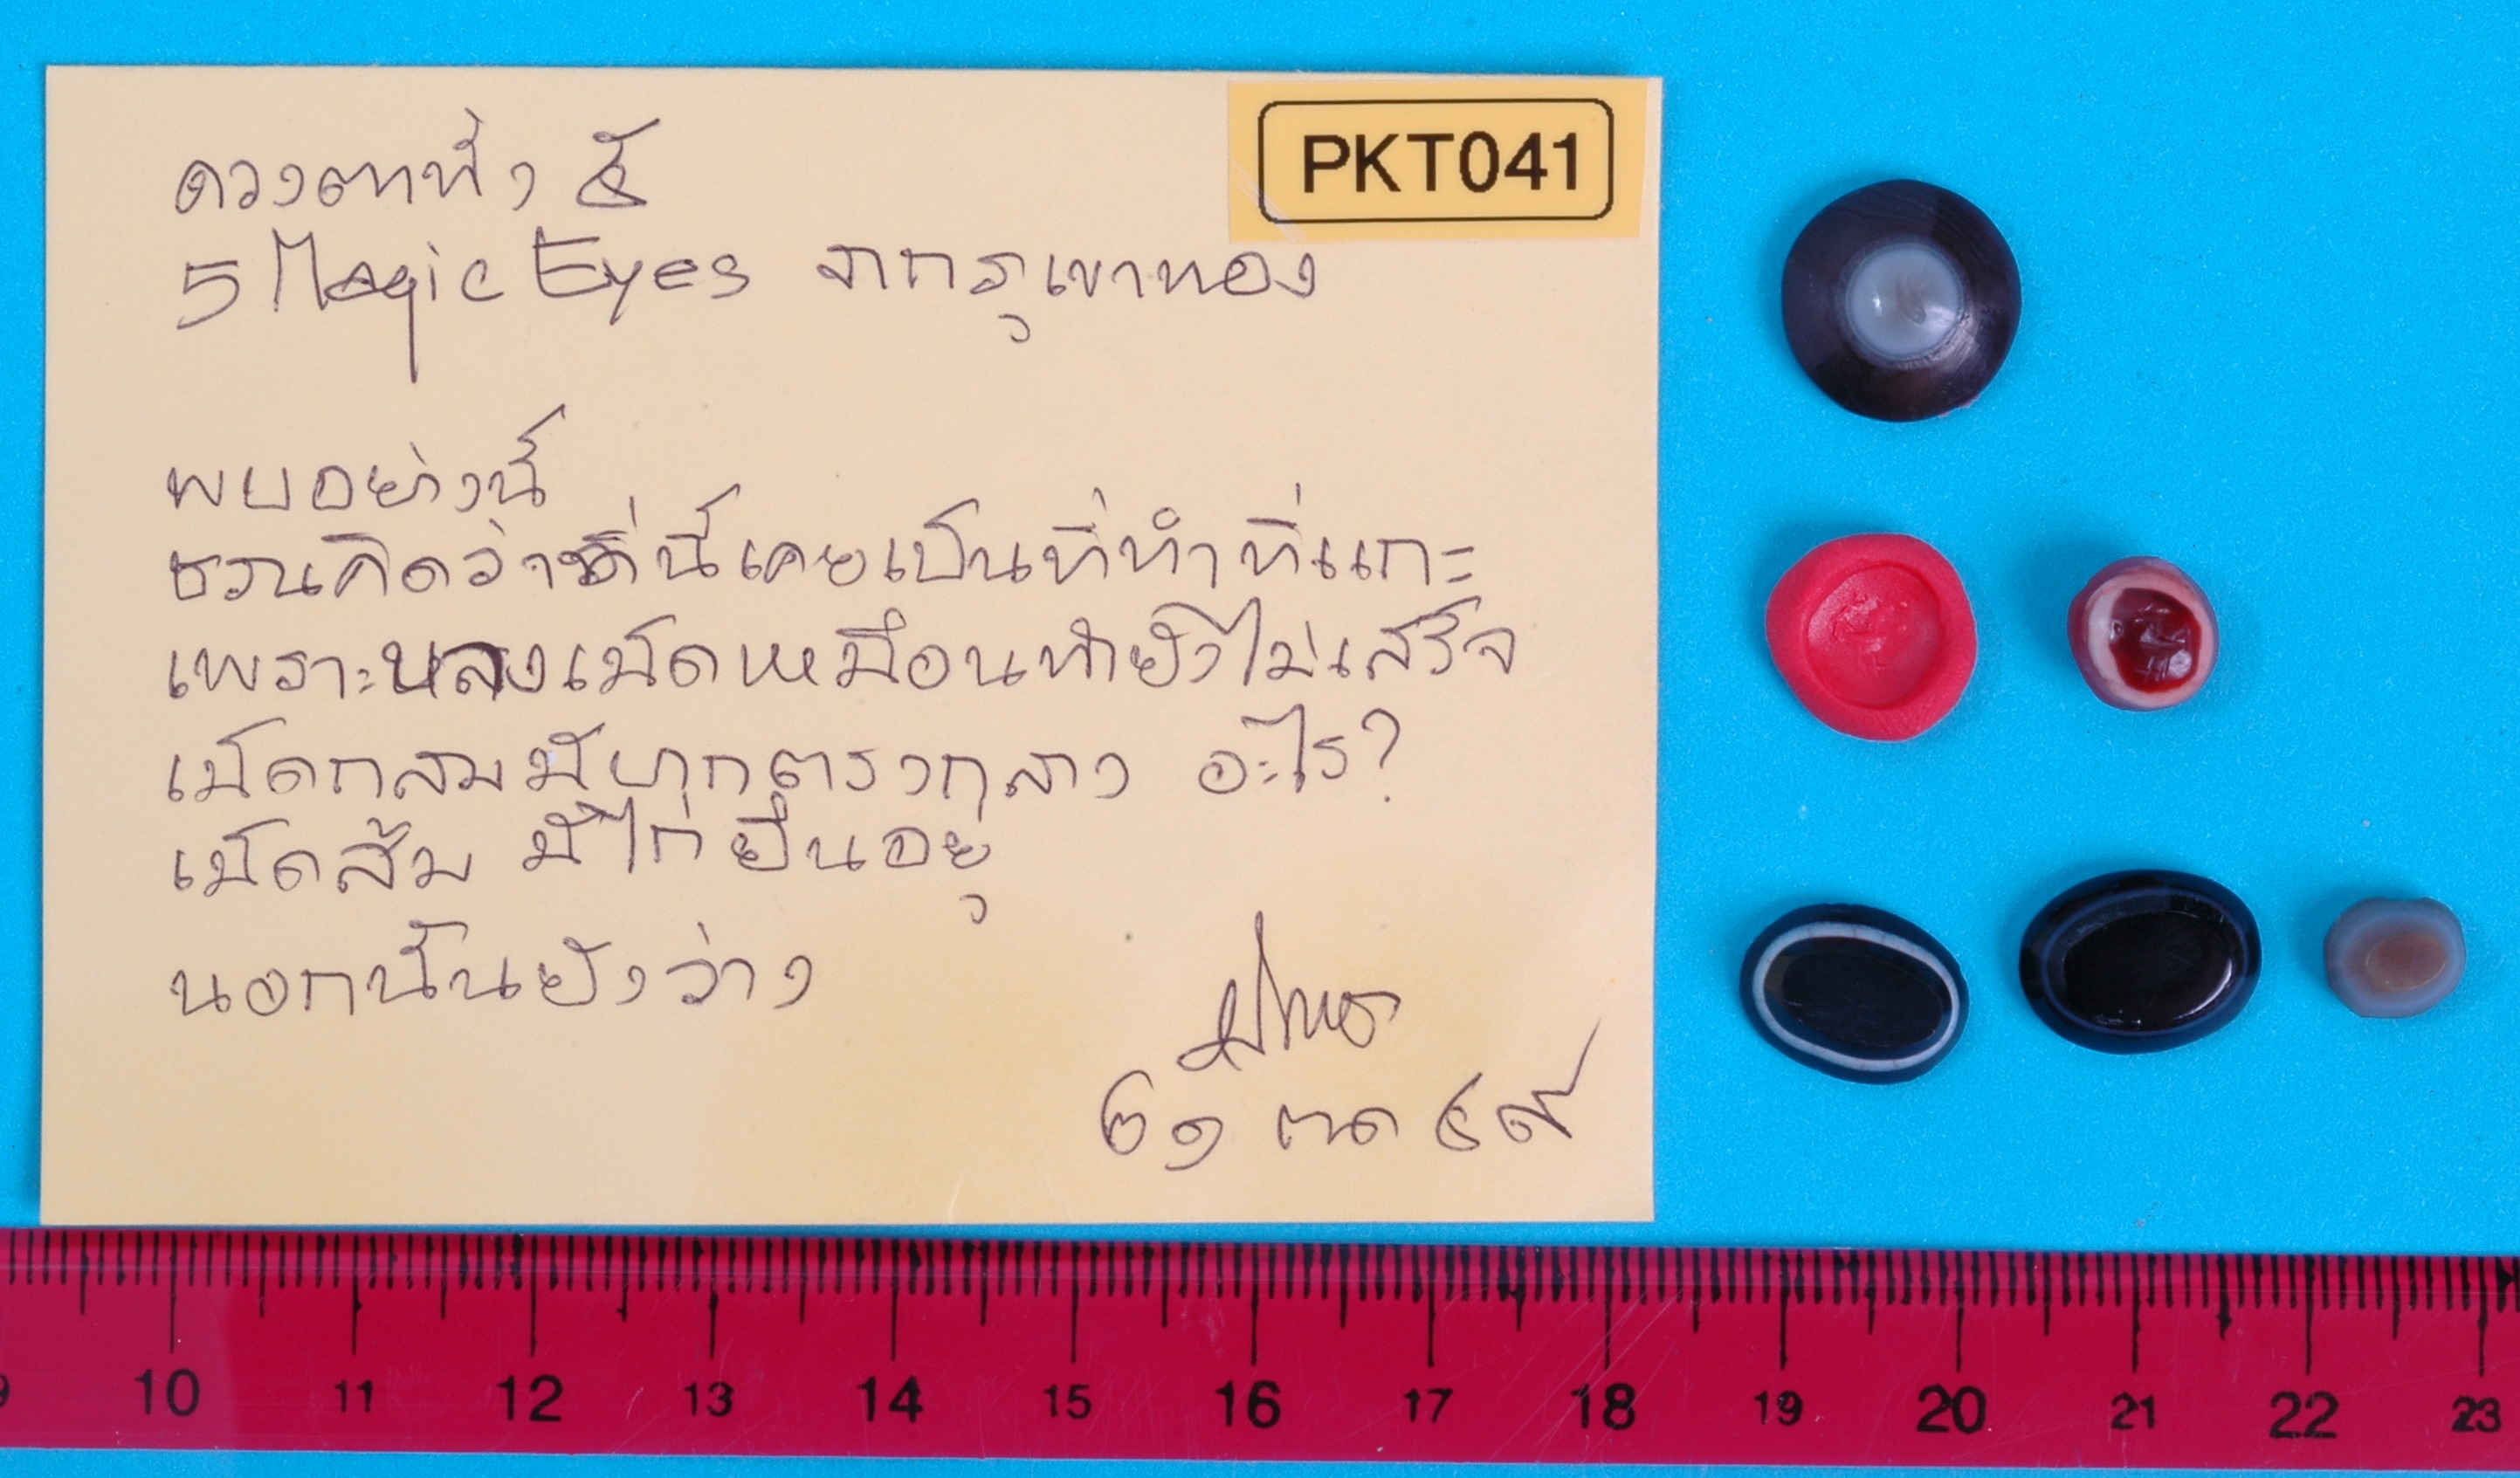 ดวงตาทั้ง ๕
PKT041
5 Magic Eyes จากภูเขาทอง
พบอย่างนี้
ชวนคิดว่าที่นี่เคยเป็นที่ทำที่แกะ
เพราะหลายเม็ดเหมือนทำยังไม่เสร็จ
เม็ดกลมมีจุกตรงกลาง อะไร?
เม็ดส้ม มีไก่ยืนอยู่
นอกนั้นยังว่าง
๒๑ ตค ๔๙
10 11 12 13 14 15 16 17 18 19 20 21 22 23